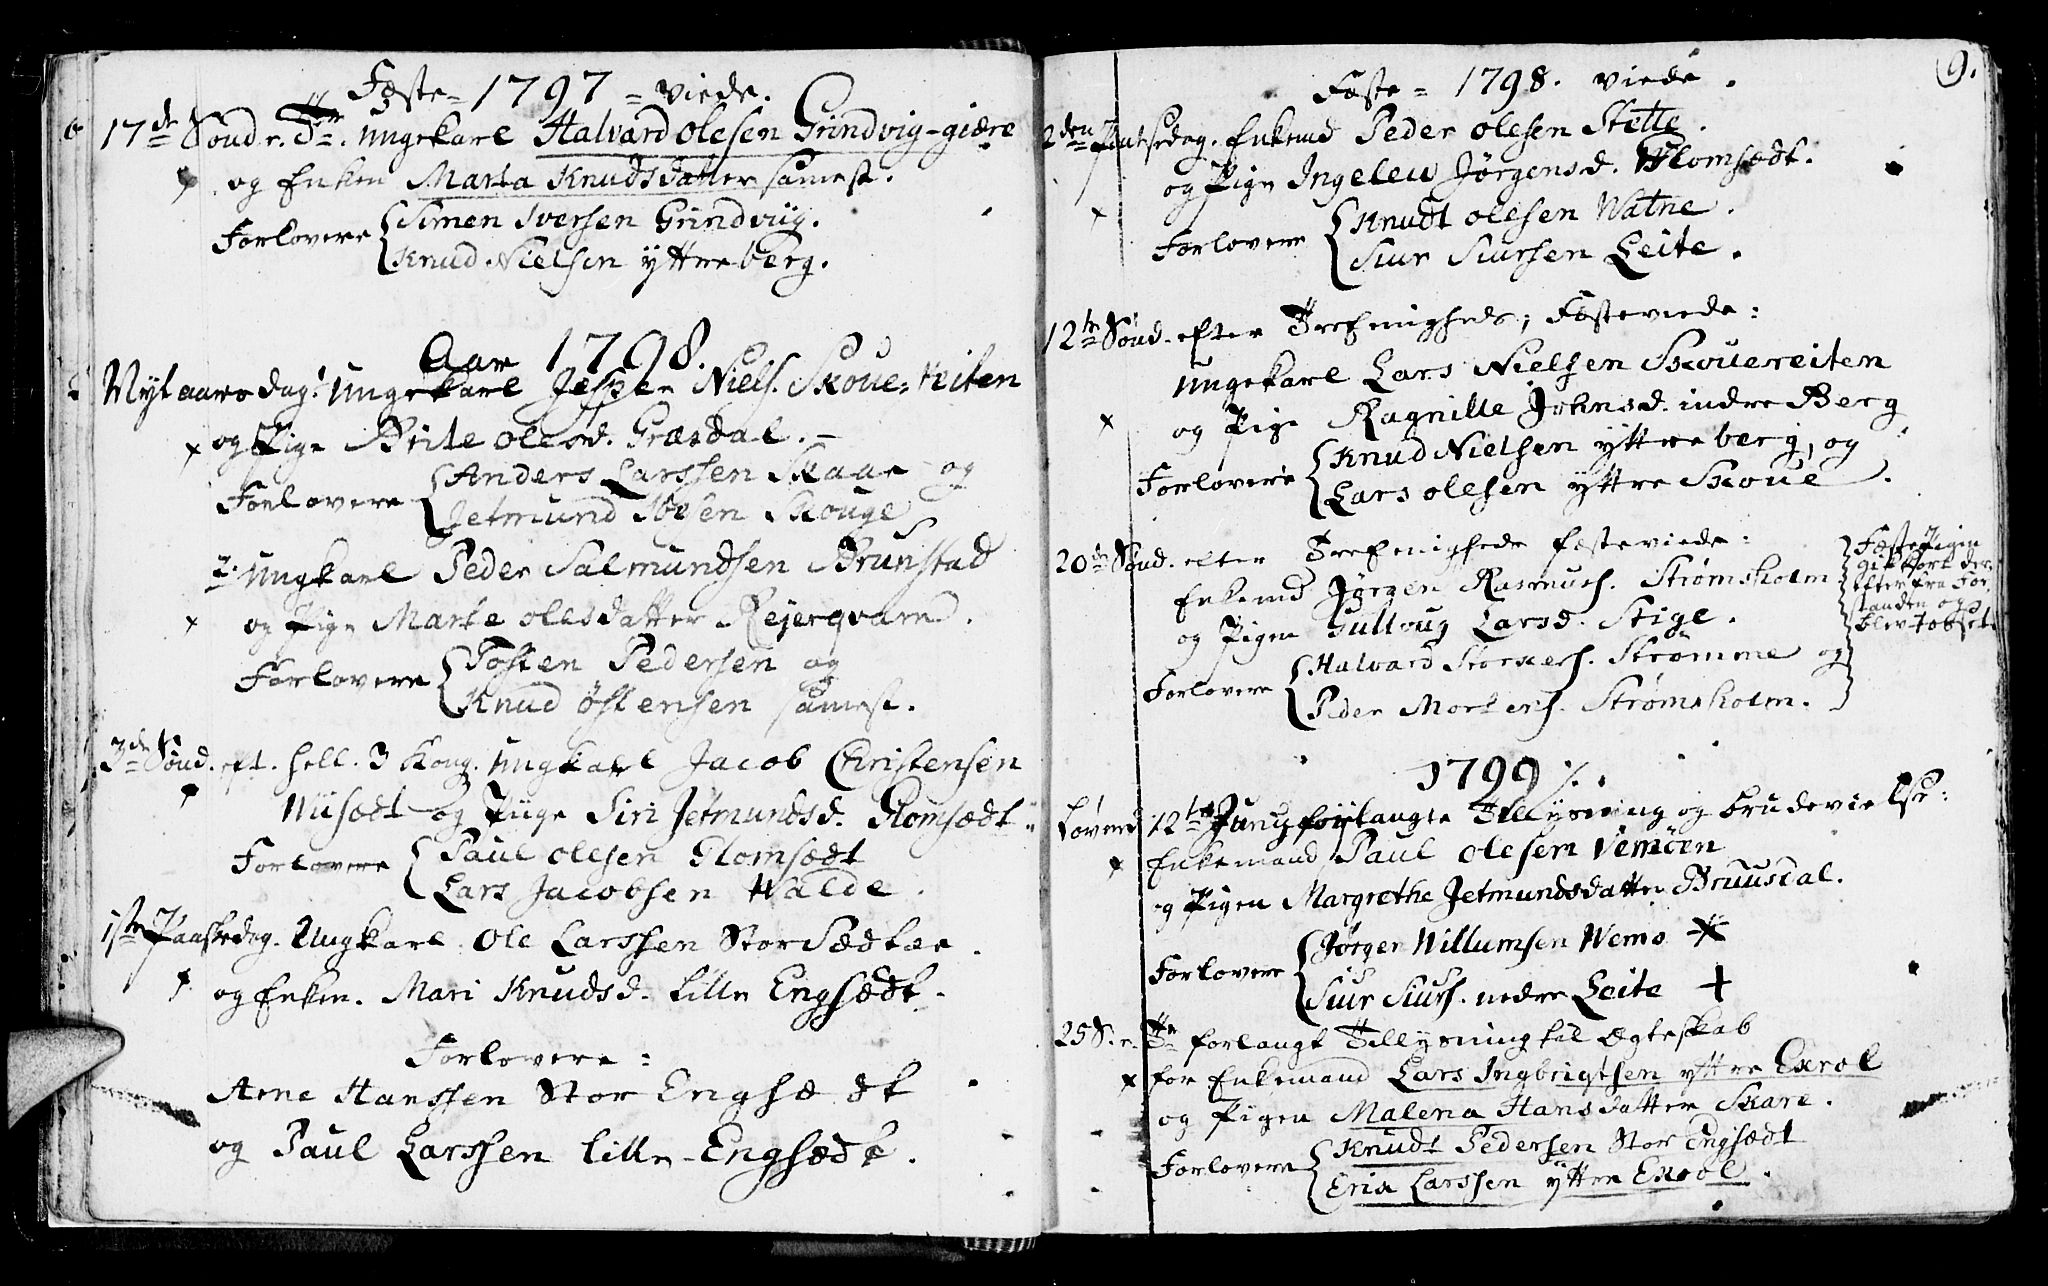 Fæste- 1797 = viede.
17de Sond. e. Tr. ungekarl Halvard olesen Grindvig-giære
og Enken Marta Knudsdatter samest.
Forlovere Simen Iversen Grindviig.
Knud Nielsen yttreberg.
Aar 1798.
Nyt aars dag: ungekarl Jesper Niels. Skoue-Reiten
og Pige Brite olesd. Græsdal.
Forlovere Anders Larssen Skaar og
Jetmund Skouge
2. ungkarl Peder Salmundsen Brunstad
og Pige Marte olesdatter Rejerqvarn.
Forlovere Tosten Pedersen og
Knud østensen samest.
3de Sond. eft. hell. 3 Kong. ungkarl Jacob Christensen
Wiisædt og Piige Siri Jetmundsd. Glomsædt
Forlovere Paul olesen Glomsædt
Lars Jacobsen Walde.
1ste Paaskedag. Ungkarl Ole Larssen StorSædtær
og Enken. Mari Knudsd. lille Engsædt.
Forlovere:
Arne Hanssen Stor Engsædt
og Paul Larssen lille-Engsædt.
9.
Fæste = 1798. viede.
2den Pintsedag. Enkemd Peder olesen Stette.
og Pige Ingeleu Jørgensd. Blomsædt.
Forlovere Knudt olesen Watne.
Siur Siursen Leite.
12te Sønd. efter Trefenigheds; Fæsteviede:
ungekarl Lars Nielsen Skouereiten
og Pige Ragnille Johnsd. indre Berg
Forlovere Knud Nielsen yttreberg, og
Lars olesen yttre Skoue.
20de Sønd. efter Trefenigheds fæsteviede:
Enkemd Jørgen Rasmus. Strømsholm
og Pigen Gulloug Larsd. Stige.
Forlovere Halvard Storkers. Strømme og
Peder Mortens. Strømsholm.
Fæste Pigen
gik bort der
efter fra For
standen og
blev
1799
Løverd 12te Juny forlangte Tillysning og brudevielse:
Enkemand Paul olesen Vemøen
og Pigen Margrethe Jetmundsdatter Bruusdal.
Forlovere Jørgen Willumsen Wemo
Siur Siurs. nedre Leite +
25 S. e. Tr. forlangt Tillysning til Ægteskab
for Enkemand Lars Ingbrigtsen yttre Exrol
og Pigen Malena Hansdatter Skare.
Forlovere Knudt Pedersen Stor Engsædt
Erik Larssen yttre Exrol.